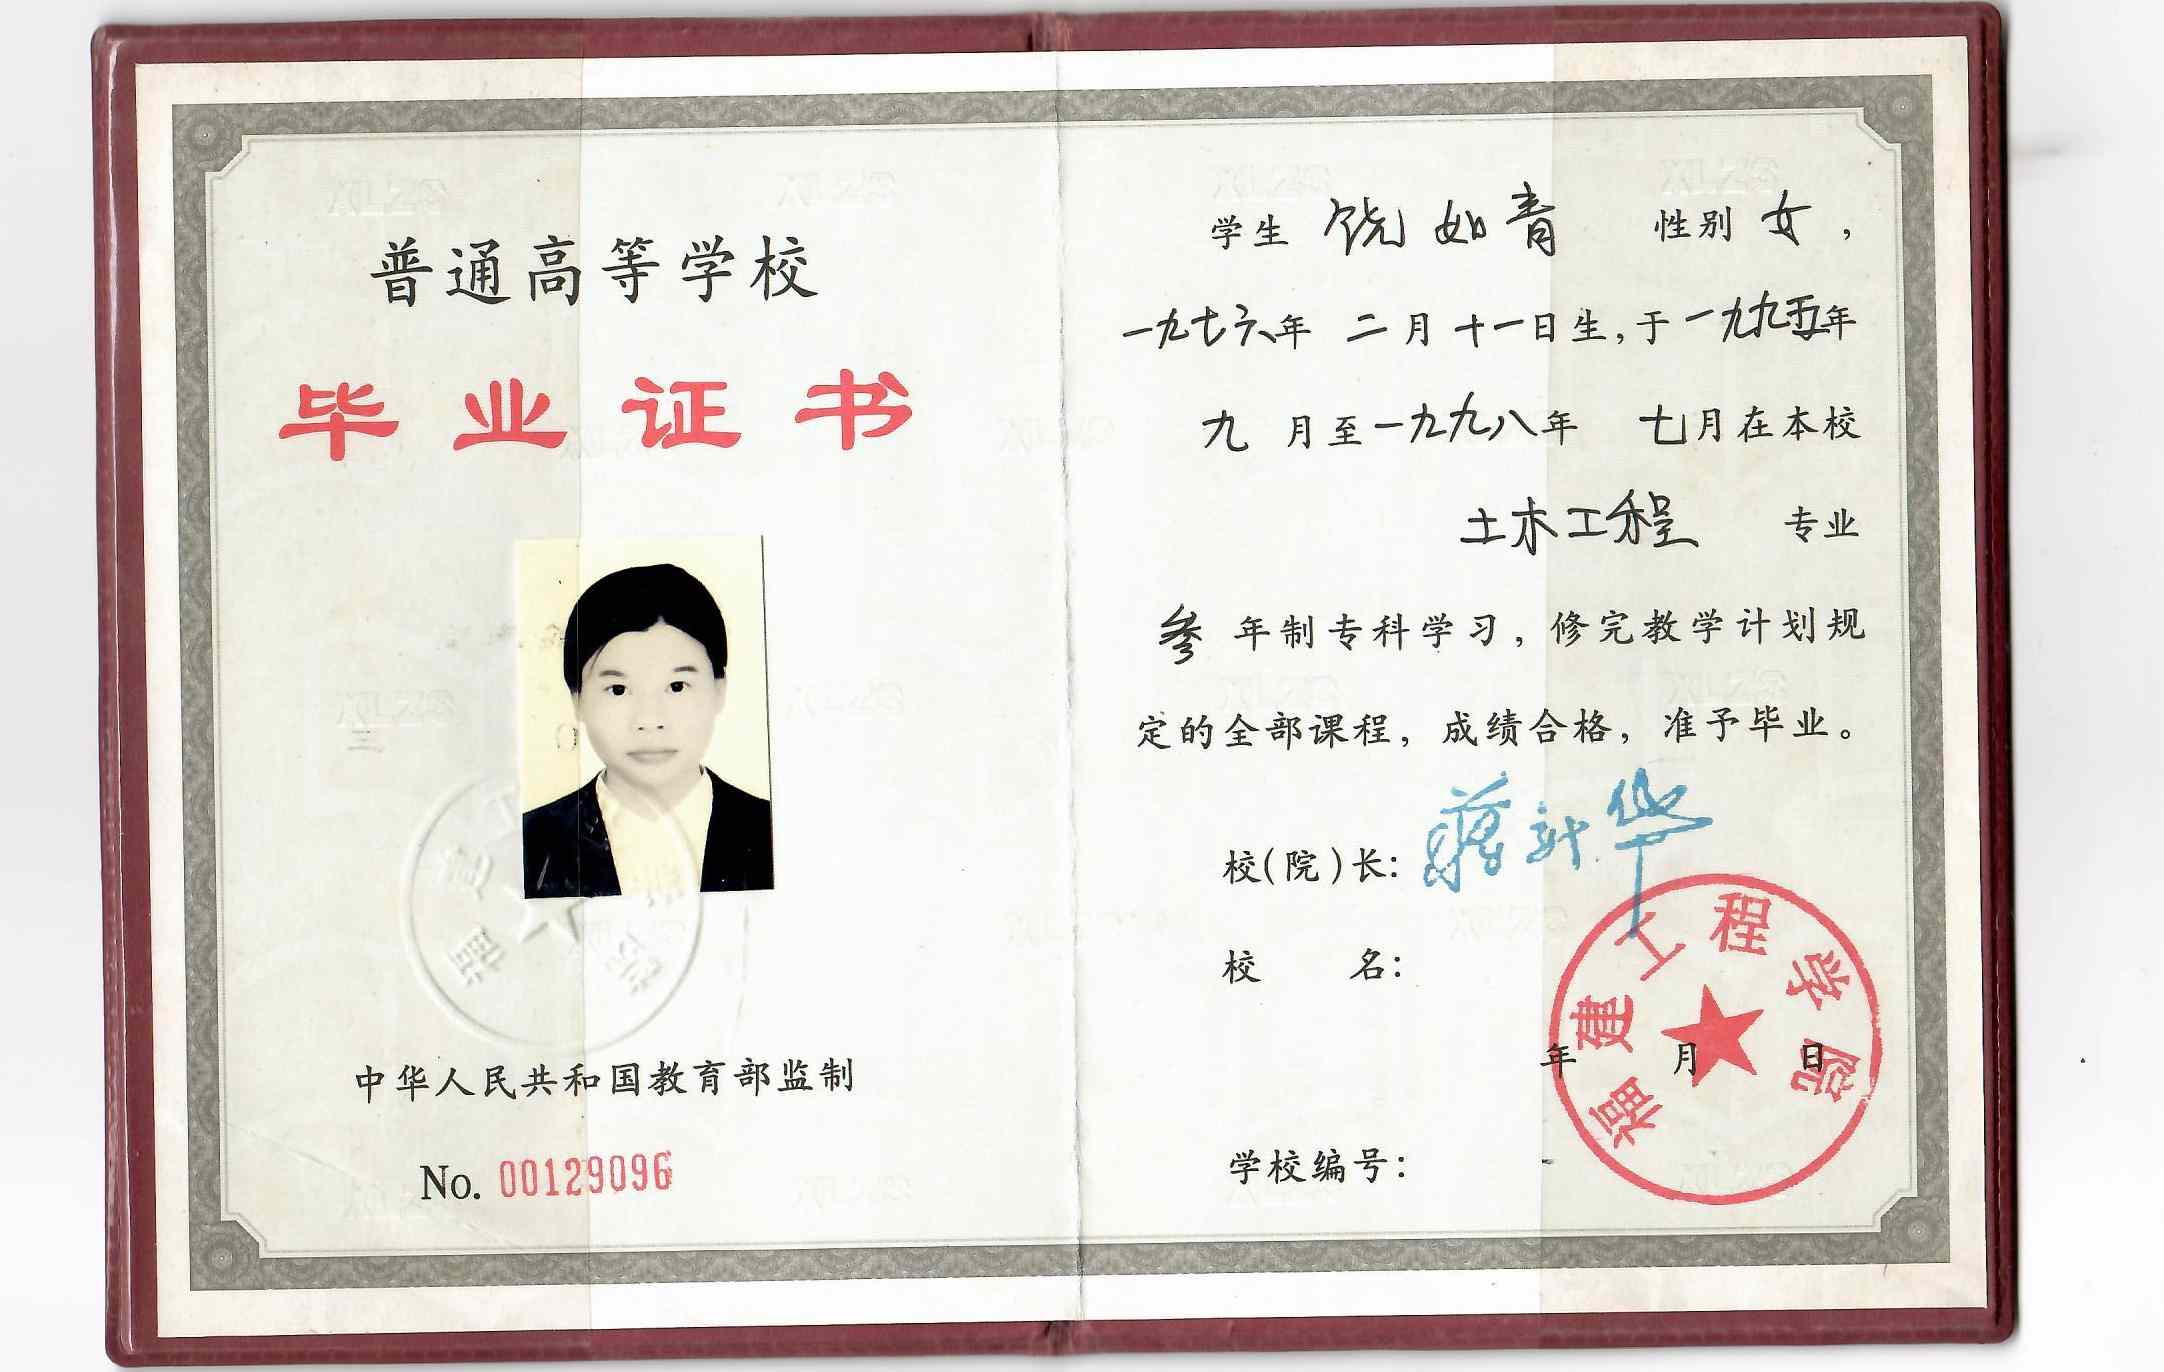 普通高等学校
毕业证书
中华人民共和国教育部监制
No. 00129096
学生 饶如青 性别 女，
一九七六年 二月十一日生，于一九九五年
九 月至一九九八年 七月在本校
土木工程 专业
叁 年制专科学习，修完教学计划规
定的全部课程，成绩合格，准予毕业。
校（院）长：蒋新华
校 名：
福建工程学院
年 月 日
学校编号：